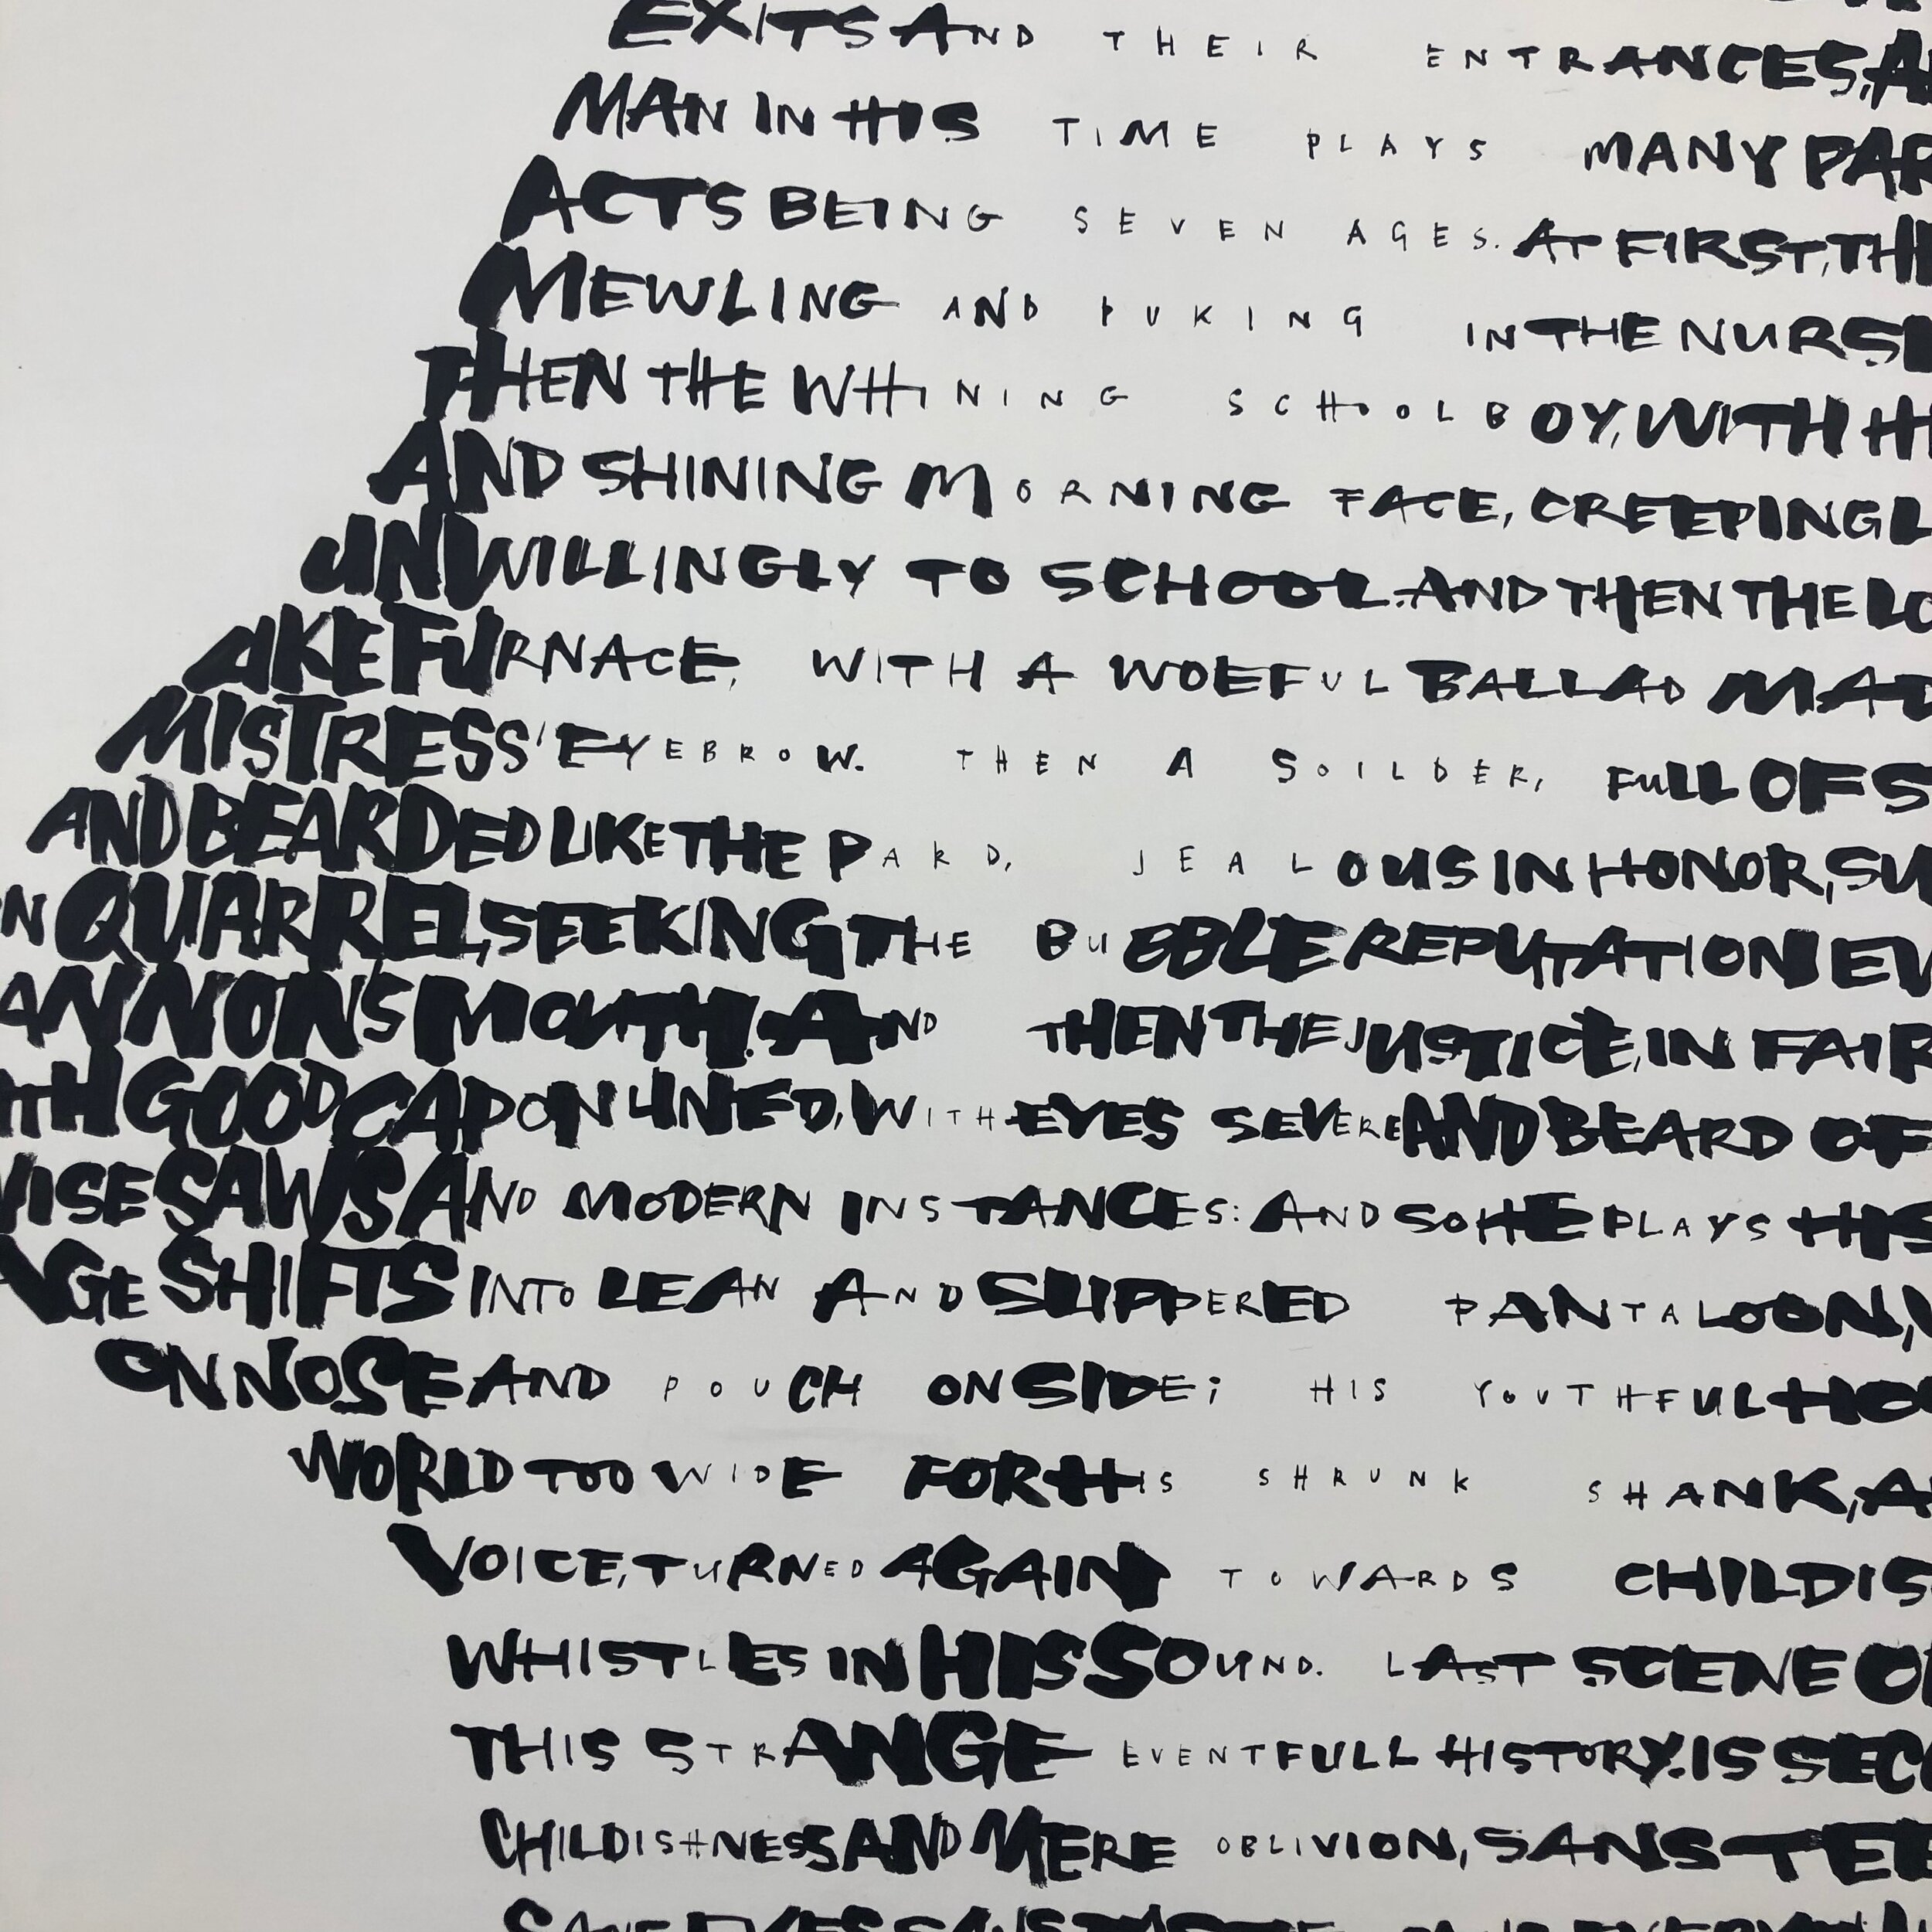 EXITS AND THEIR ENTRANCES, A
MAN IN HIS TIME PLAYS MANY PAR
ACTS BEING SEVEN AGES. AT FIRST, THE
MEWLING AND PUKING IN THE NURSE
THEN THE WHINING SCHOOLBOY, WITH H
AND SHINING MORNING FACE, CREEPING L
UNWILLINGLY TO SCHOOL. AND THEN THE LO
LIKE FURNACE, WITH A WOEFUL BALLAD MAD
MISTRESS' EYEBROW. THEN A SOILDER, FULL OF S
AND BEARDED LIKE THE PARD, JEALOUS IN HONOR, SU
N QUARREL, SEEKING THE BUBBLE REPUTATION EV
ANNON'S MOUTH. AND THEN THE JUSTICE, IN FAIR
ITH GOOD CAPON LINED, WITH EYES SEVERE AND BEARD OF
WISE SAWS AND MODERN INSTANCES: AND SO HE PLAYS HIS
AGE SHIFTS INTO LEAN AND SLIPPERED PANTALOON, W
ON NOSE AND POUCH ON SIDE; HIS YOUTHFUL HO
WORLD TOO WIDE FOR HIS SHRUNK SHANK, A
VOICE, TURNED AGAIN TOWARDS CHILDIS
WHISTLES IN HIS SOUND. LAST SCENE O
THIS STRANGE EVENTFULL HISTORY. IS SECO
CHILDISHNESS AND MERE OBLIVION, SANS TEE
SANS EYES SANS TASTE SANS EVERY